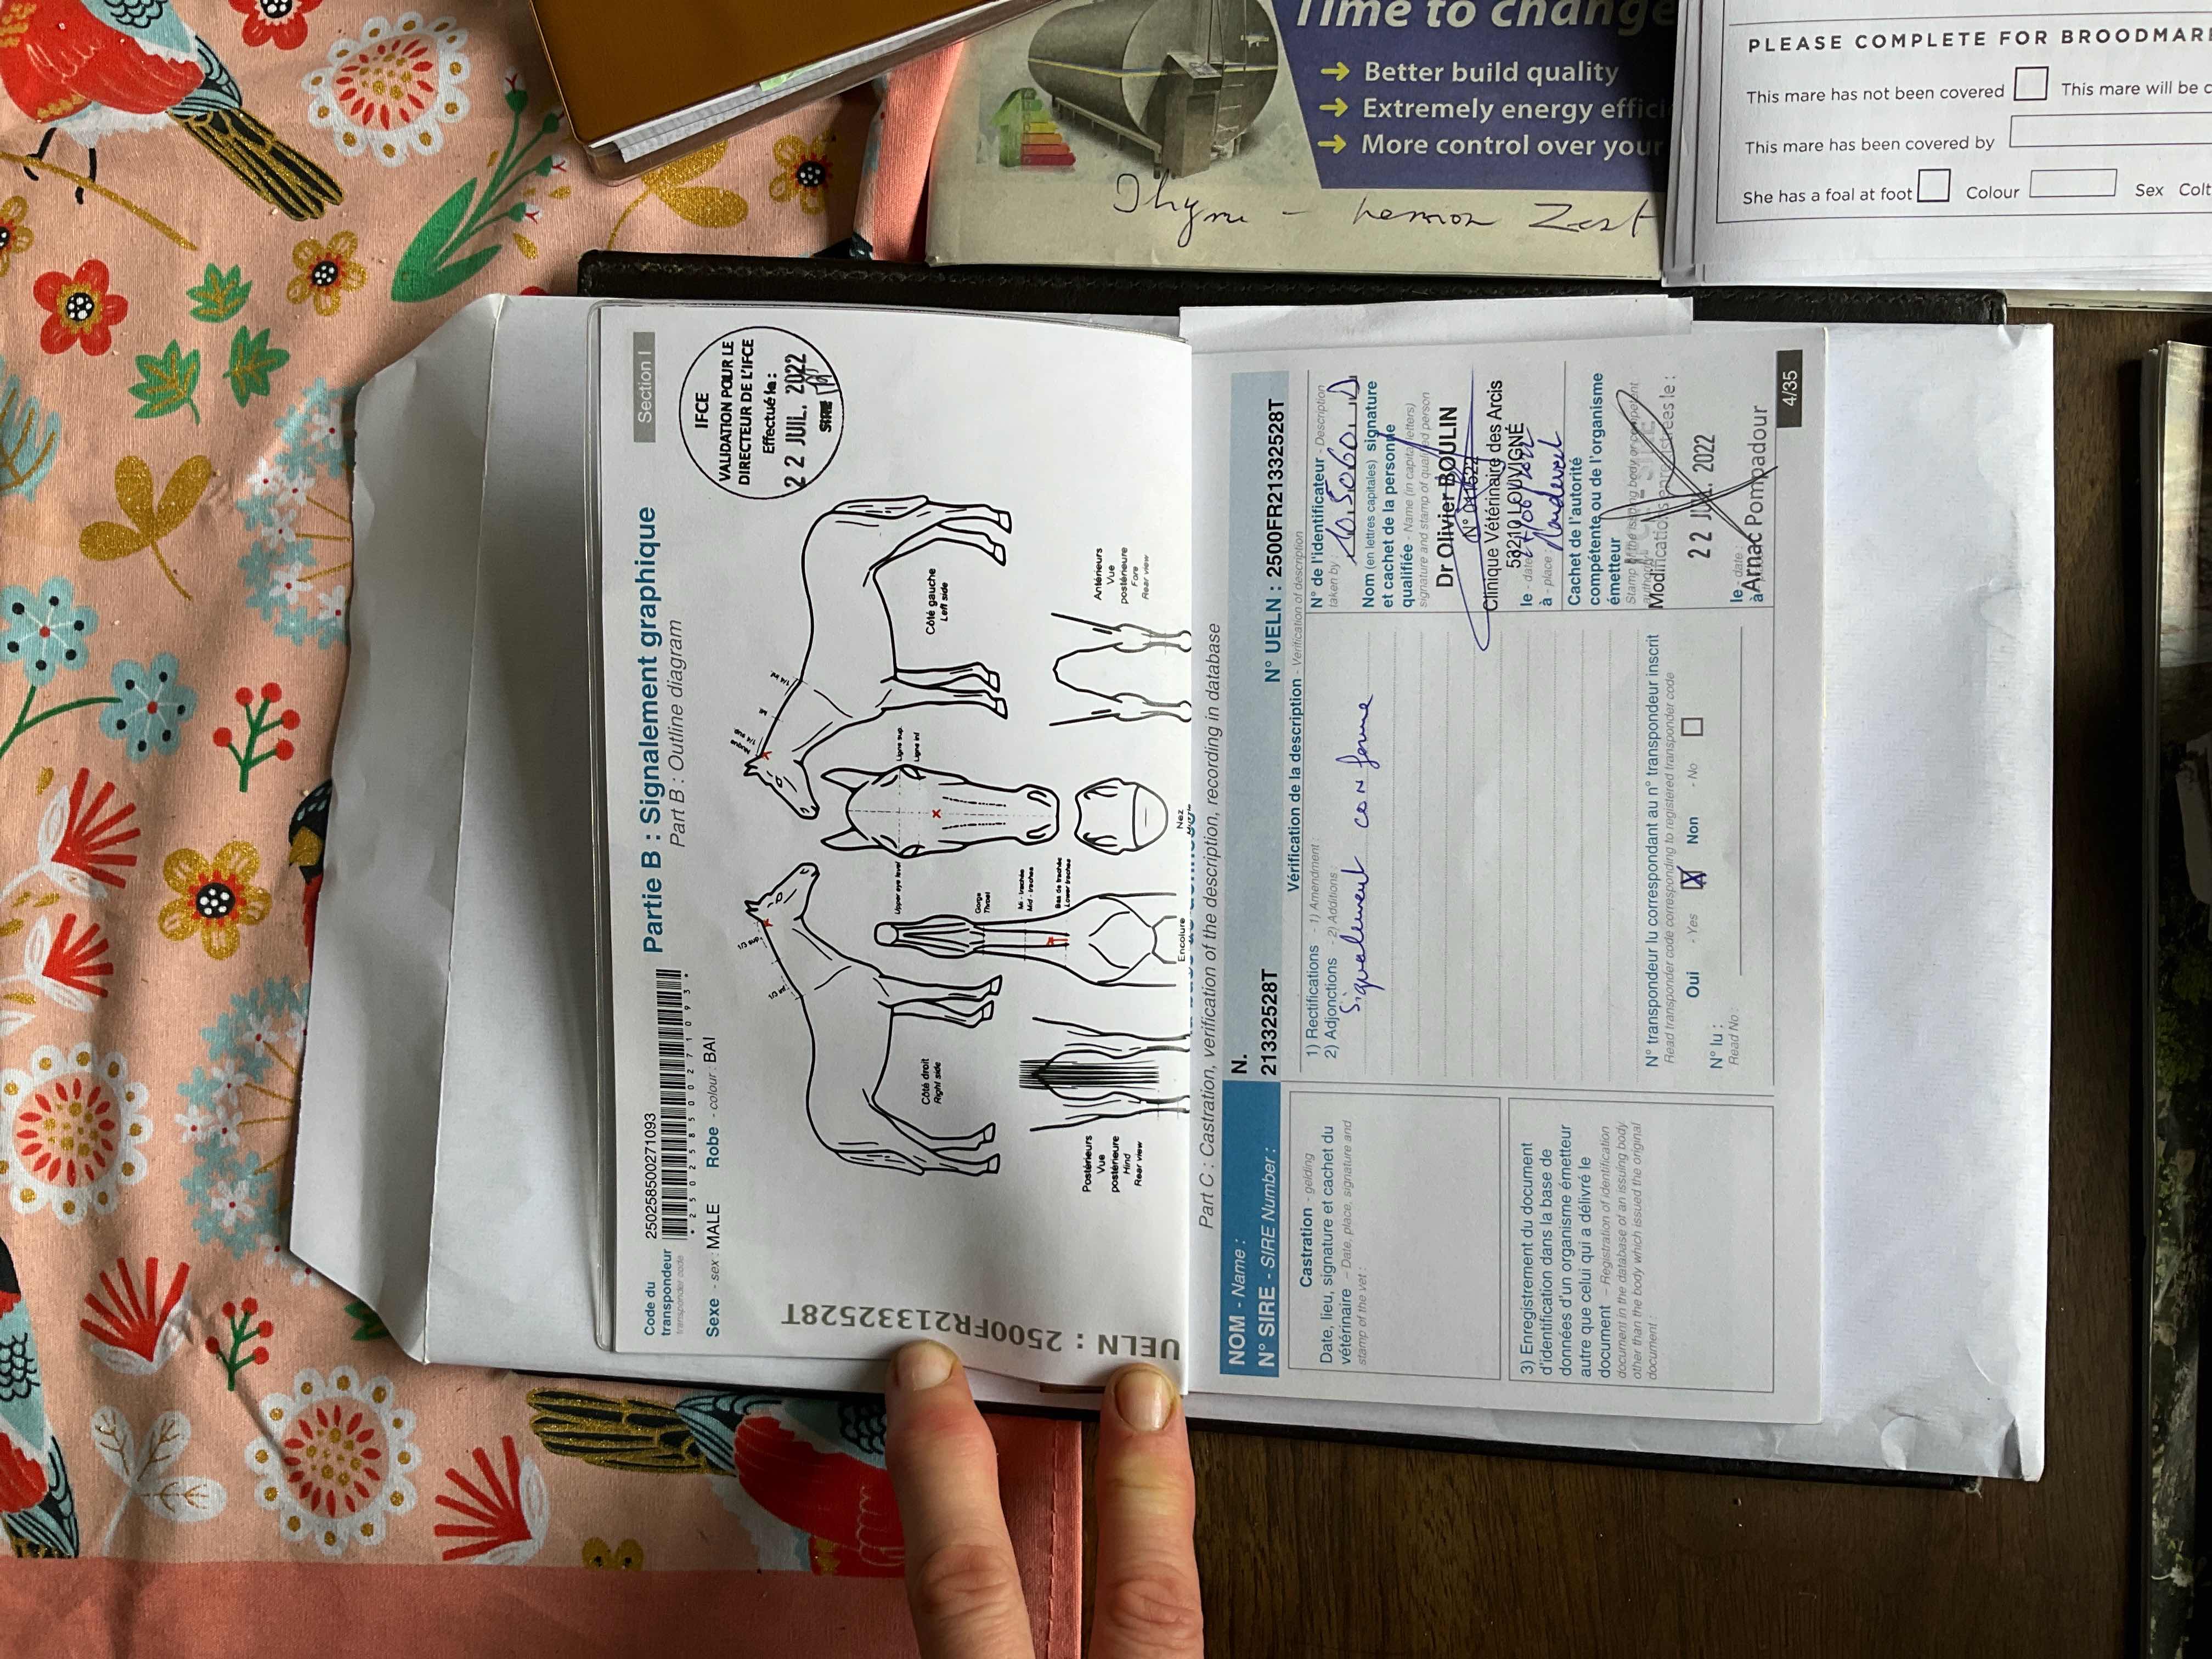 Time to change
→ Better build quality
→ Extremely energy effici
→ More control over your
Thyme - Lemon Zest
PLEASE COMPLETE FOR BROODMARE
This mare has not been covered
This mare will be c
This mare has been covered by
She has a foal at foot
Colour
Sex
Colt
Section I
Code du
transpondeur
transponder code
250258500271093
* 2 5 0 2 5 8 5 0 0 2 7 1 0 9 3 *
Partie B : Signalement graphique
Part B : Outline diagram
Sexe - sex : MALE
Robe - colour : BAI
IFCE
VALIDATION POUR LE
DIRECTEUR DE L'IFCE
Effectué le :
22 JUIL. 2022
SIRE
UELN : 2500FR21332528T
1/4 sup
1/4 inf
Nuque
1/4 sup
1/4 inf
Côté droit
Right side
Côté gauche
Left side
Ligne sup.
Ligne inf
Upper eye level
Gorge
Throat
Mi - trachée
Mid - trachea
Bas de trachée
Lower trachea
Postérieurs
Vue
postérieure
Hind
Rear view
Encolure
Nez
Antérieurs
Vue
postérieure
Fore
Rear view
Part C : Castration, verification of the description, recording in database
NOM - Name :
N.
N° SIRE - SIRE Number :
21332528T
N° UELN : 2500FR21332528T
Castration - gelding
Date, lieu, signature et cachet du
vétérinaire – Date, place, signature and
stamp of the vet :
3) Enregistrement du document
d'identification dans la base de
données d'un organisme émetteur
autre que celui qui a délivré le
document – Registration of identification
document in the database of an issuing body
other than the body which issued the original
document :
Vérification de la description - Verification of description
1) Rectifications - 1) Amendment :
2) Adjonctions - 2) Additions :
Signalement conforme
N° transpondeur lu correspondant au n° transpondeur inscrit
Read transponder code corresponding to registered transponder code
Oui - Yes
Non - No
N° lu :
Read No :
N° de l'identificateur - Description
taken by :
Nom (en lettres capitales) signature
et cachet de la personne
qualifiée - Name (in capital letters)
signature and stamp of qualified person
Dr Olivier BOULIN
Clinique Vétérinaire des Arcis
53210 LOUVIGNÉ
le - date
à - place :
Cachet de l'autorité
compétente ou de l'organisme
émetteur
Stamp of the issuing body or competent
Modifications enregistrées le :
22 JUIL. 2022
le - date :
à Arnac Pompadour
4/35